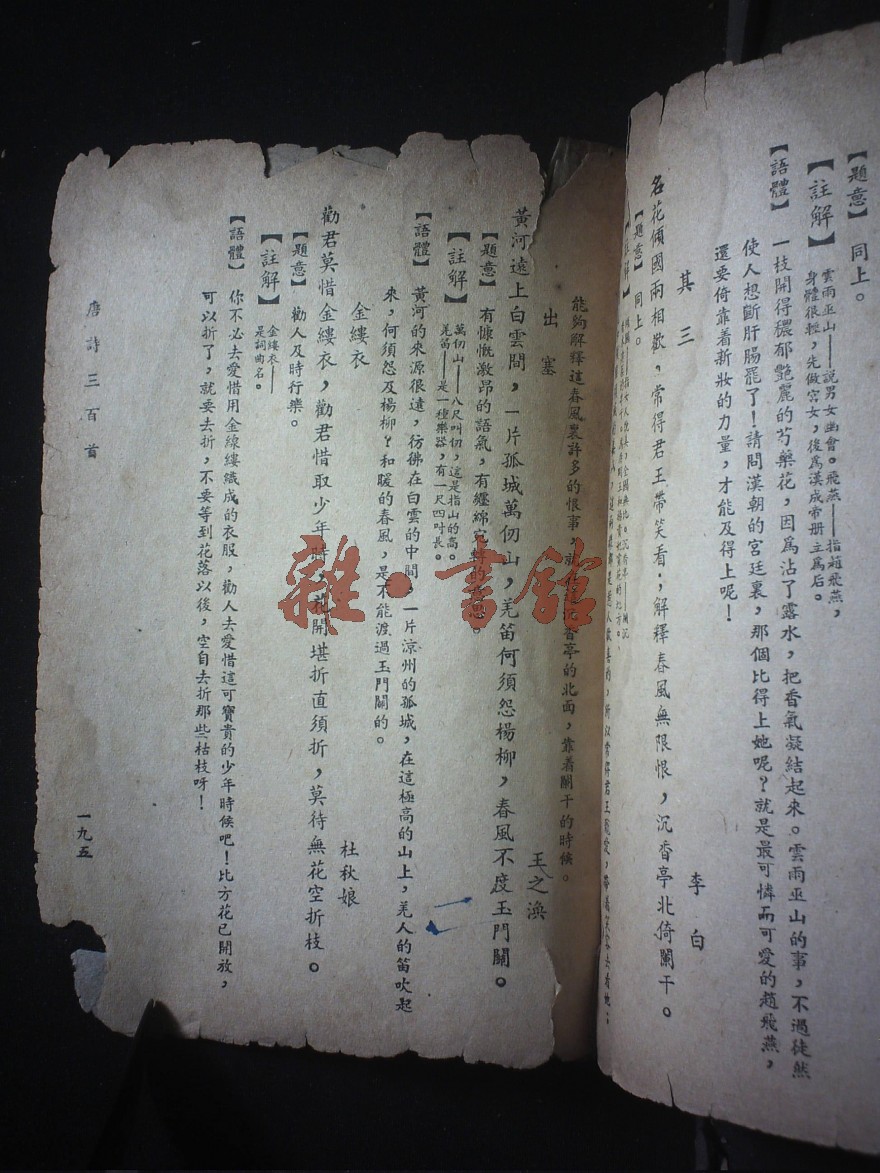 【題意】同上。
【註解】雲雨巫山——說男女幽會。飛燕——指趙飛燕，
身體很輕，先做宮女，後爲漢成帝册立爲后。
【語體】一枝開得穠郁艷麗的芍藥花，因爲沾了露水，把香氣凝結起來。雲雨巫山的事，不過徒然
使人想斷肝腸罷了！請問漢朝的宮廷裏，那個比得上她呢？就是最可憐而可愛的趙飛燕，
還要倚靠着新妝的力量，才能及得上呢！
其三 李白
名花傾國兩相歡，常得君王帶笑看；解釋春風無限恨，沉香亭北倚闌干。
【題意】同上。
能夠解釋這春風裏許多的恨事，就在沉香亭的北面，靠着闌干的時候。
出塞 王之渙
黃河遠上白雲間，一片孤城萬仞山，羌笛何須怨楊柳，春風不度玉門關。
【題意】有慷慨激昂的語氣，有纏綿宛轉的意思。
【註解】萬仞山——八尺叫仞，這是指山的高。
羌笛——是一種樂器，有一尺四吋長。
【語體】黃河的來源很遠，彷彿在白雲的中間。一片涼州的孤城，在這極高的山上，羌人的笛吹起
來，何須怨及楊柳？和暖的春風，是不能渡過玉門關的。
金縷衣 杜秋娘
勸君莫惜金縷衣，勸君惜取少年時，花開堪折直須折，莫待無花空折枝。
【題意】勸人及時行樂。
【註解】金縷衣——
是詞曲名。
【語體】你不必去愛惜用金線縷織成的衣服，勸人去愛惜這可寶貴的少年時候吧！比方花已開放，
可以折了，就要去折，不要等到花落以後，空自去折那些枯枝呀！
唐詩三百首 一九五
雜·書館